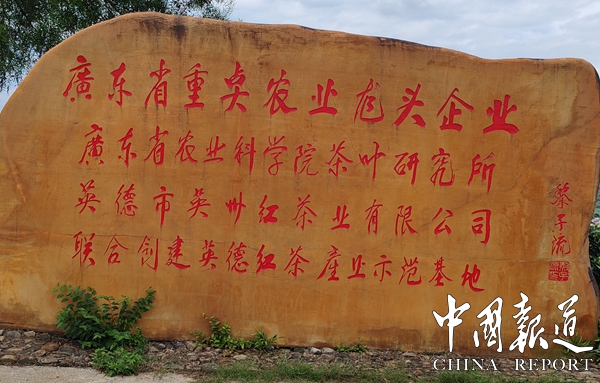 廣东省重点农业龙头企业
廣东省农业科学院茶叶研究所
英德市英州红茶业有限公司
联合创建英德红茶產业示范基地
中國報道
CHINA REPORT